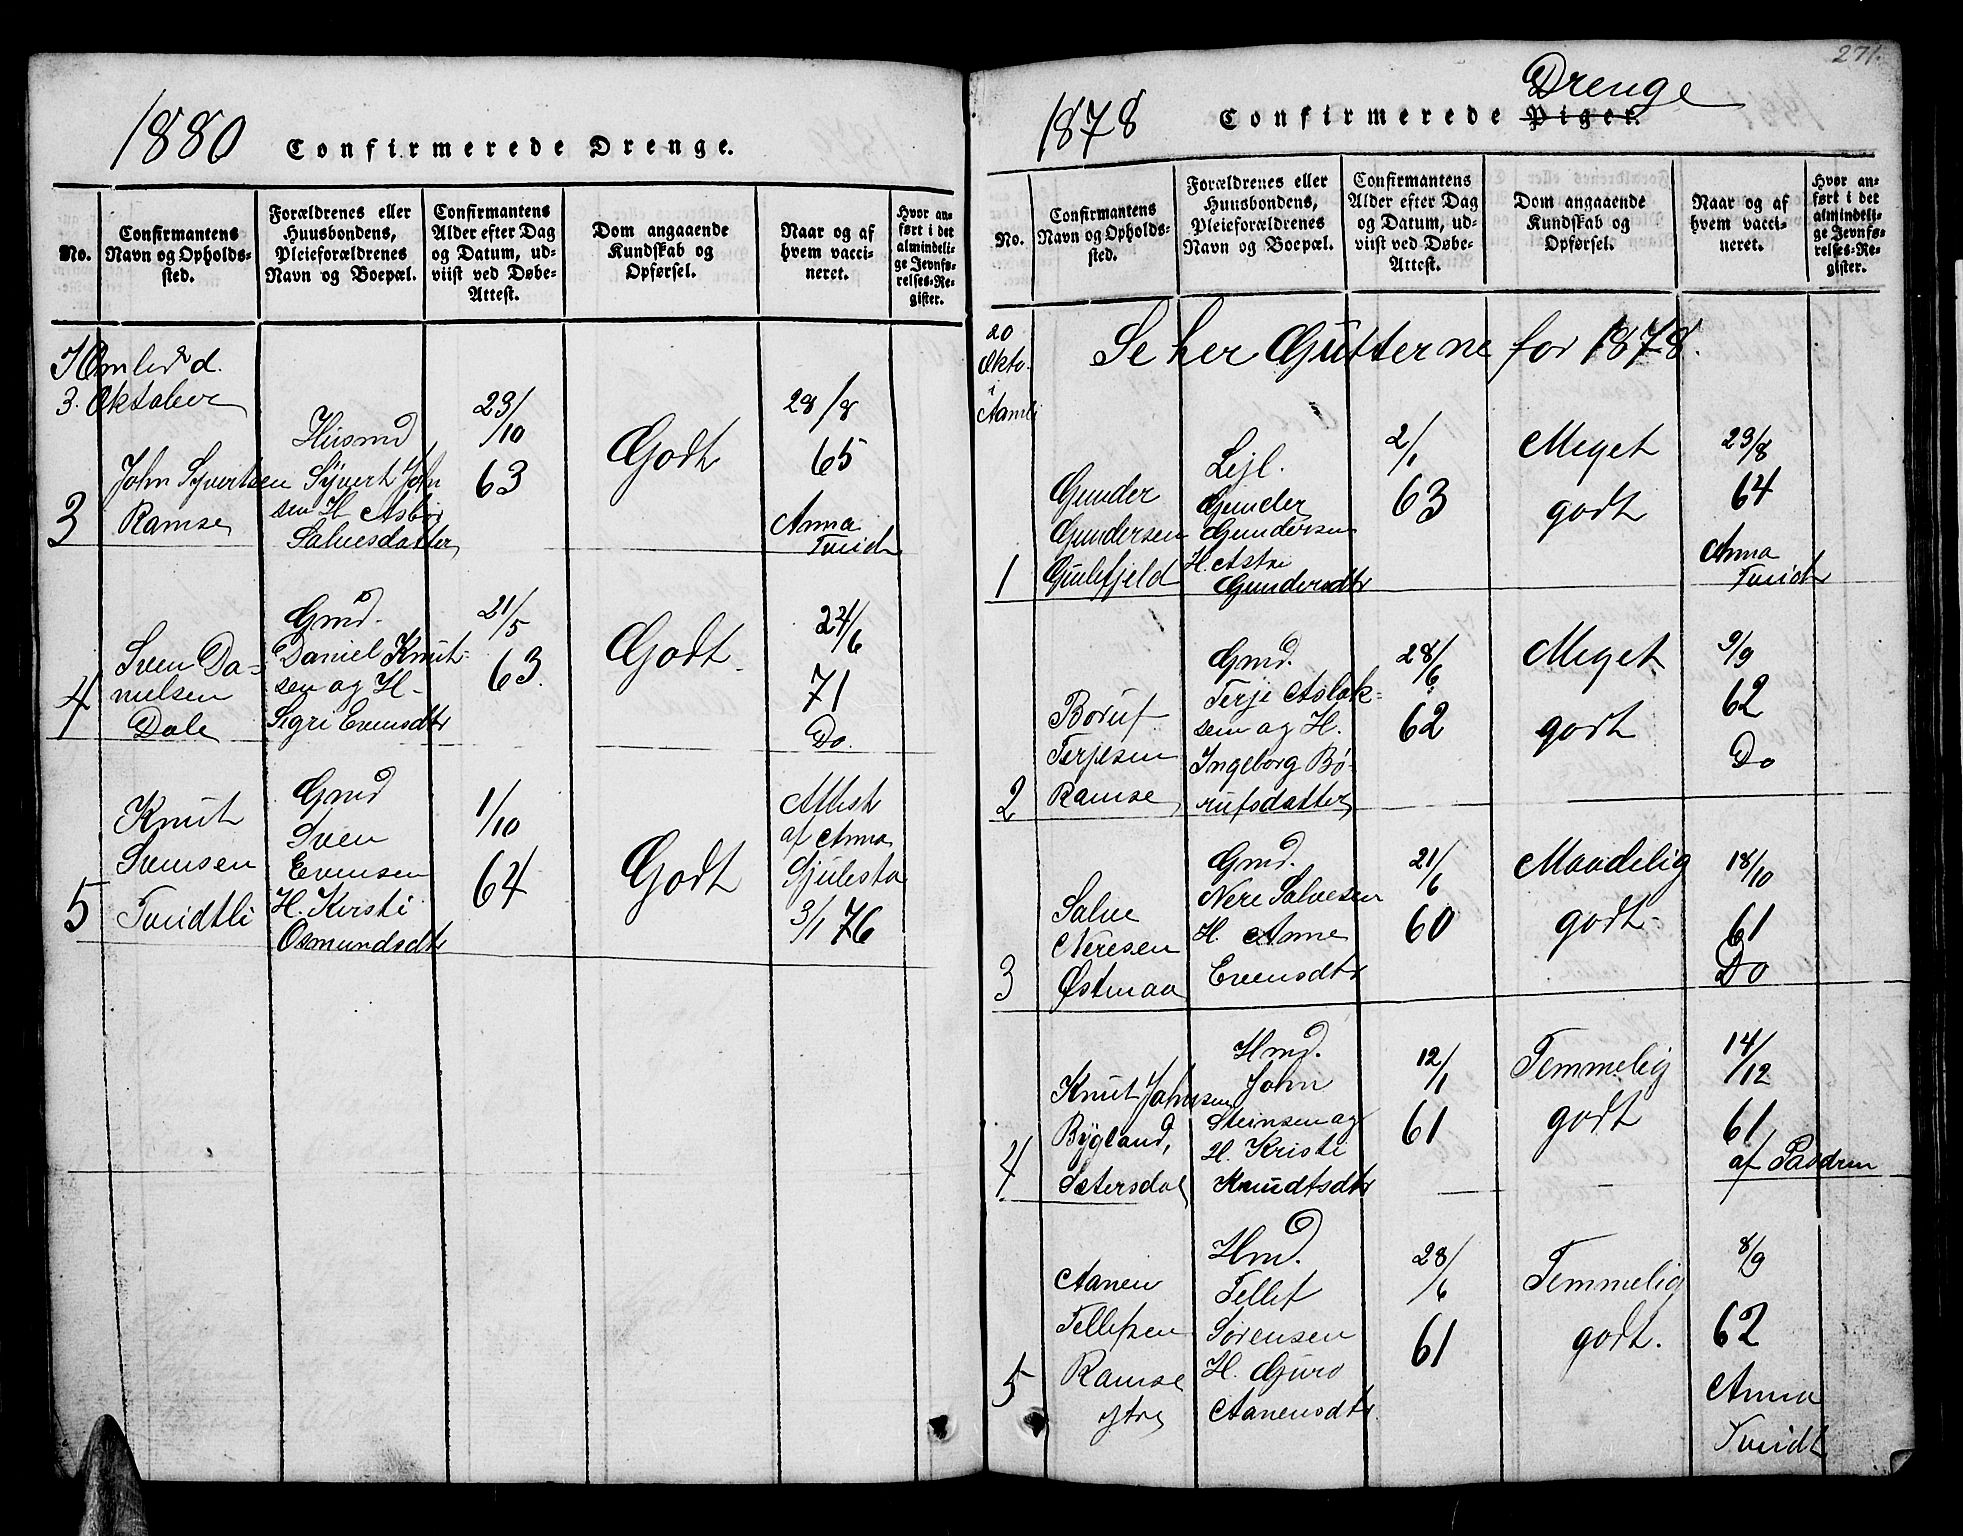 1880 Confirmerede Drenge.
No.
Confirmantens
Navn og Opholds-
sted.
Forældrenes eller
Huusbondens,
Pleieforældrenes
Navn og Boepæl.
Confirmantens
Alder efter Dag
og Datum, ud-
viist ved Døbe-
Attest.
Dom angaaende
Kundskab og
Opførsel.
Naar og af
hvem vacci-
neret.
Hvor an-
ført i det
almindeli-
ge Jevnfø-
relses-Re-
gister.
3. Oktober
3
John Syvertsen
Ramse
Husmd
Syvert John
sen H Asbør
Salvesdatter
23/10
63
Godt
28/8
65
Anna
Tveidt
4
Sven Da-
nielsen
Dale
Gmd.
Daniel Knut-
sen og H-
Sigri Evensdtr
21/5
63.
Godt.
24/6
71
Do.
5
Knut
Svensen
Tveidtli
Gmd
Sven
Evensen
H. Kirsti
Osmundsdtr
1/10
64
Godt
Attest
af Anna
Sjulesta
3/1 76
271.
1878 Confirmerede Piger.
Drenge
No.
Confirmantens
Navn og Opholds-
sted.
Forældrenes eller
Huusbondens,
Pleieforældrenes
Navn og Boepæl.
Confirmantens
Alder efter Dag
og Datum, ud-
viist ved Døbe-
Attest.
Dom angaaende
Kundskab og
Opførsel.
Naar og af
hvem vacci-
neret.
Hvor an-
ført i det
almindeli-
ge Jevnfø-
relses-Re-
gister.
20
Okto.
i
Aamli
Se her Gutterne for 1878.
1
Gunder
Gundersen
Gulefjeld
Lejl.
Gunder
Gundersen
H. Astri
Gundersdtr
2/1
63
Meget
godt
23/8
64
Anna
Tveidt
2
Boruf
Terjesen
Ramse
Gmd.
Terje Aslak-
sen og H.
Ingeborg Bø-
rufsdatter
28/6
62
Meget
godt
9/9
62
Do
3
Salve
Neresen
Østmaa
Gmd.
Nere Salvesen
H. Anne
Evensdtr
21/6
60
Maadelig
godt-
18/10
61
Do
4
Knut Johnsen
Bygland,
Sætersdal
Hmd.
John
Steinsen og
H. Kristi
Knudtsdtr
12/1
61
Temmelig
godt
14/12
61
af Paadren
5
Aanen
Tellefsen
Ramse
ytre
Hmd.
Tellef
Sørensen
H. Guro
Aanensdtr.
28/6
61
Temmelig
godt.
8/9
62
Anna
Tveidt